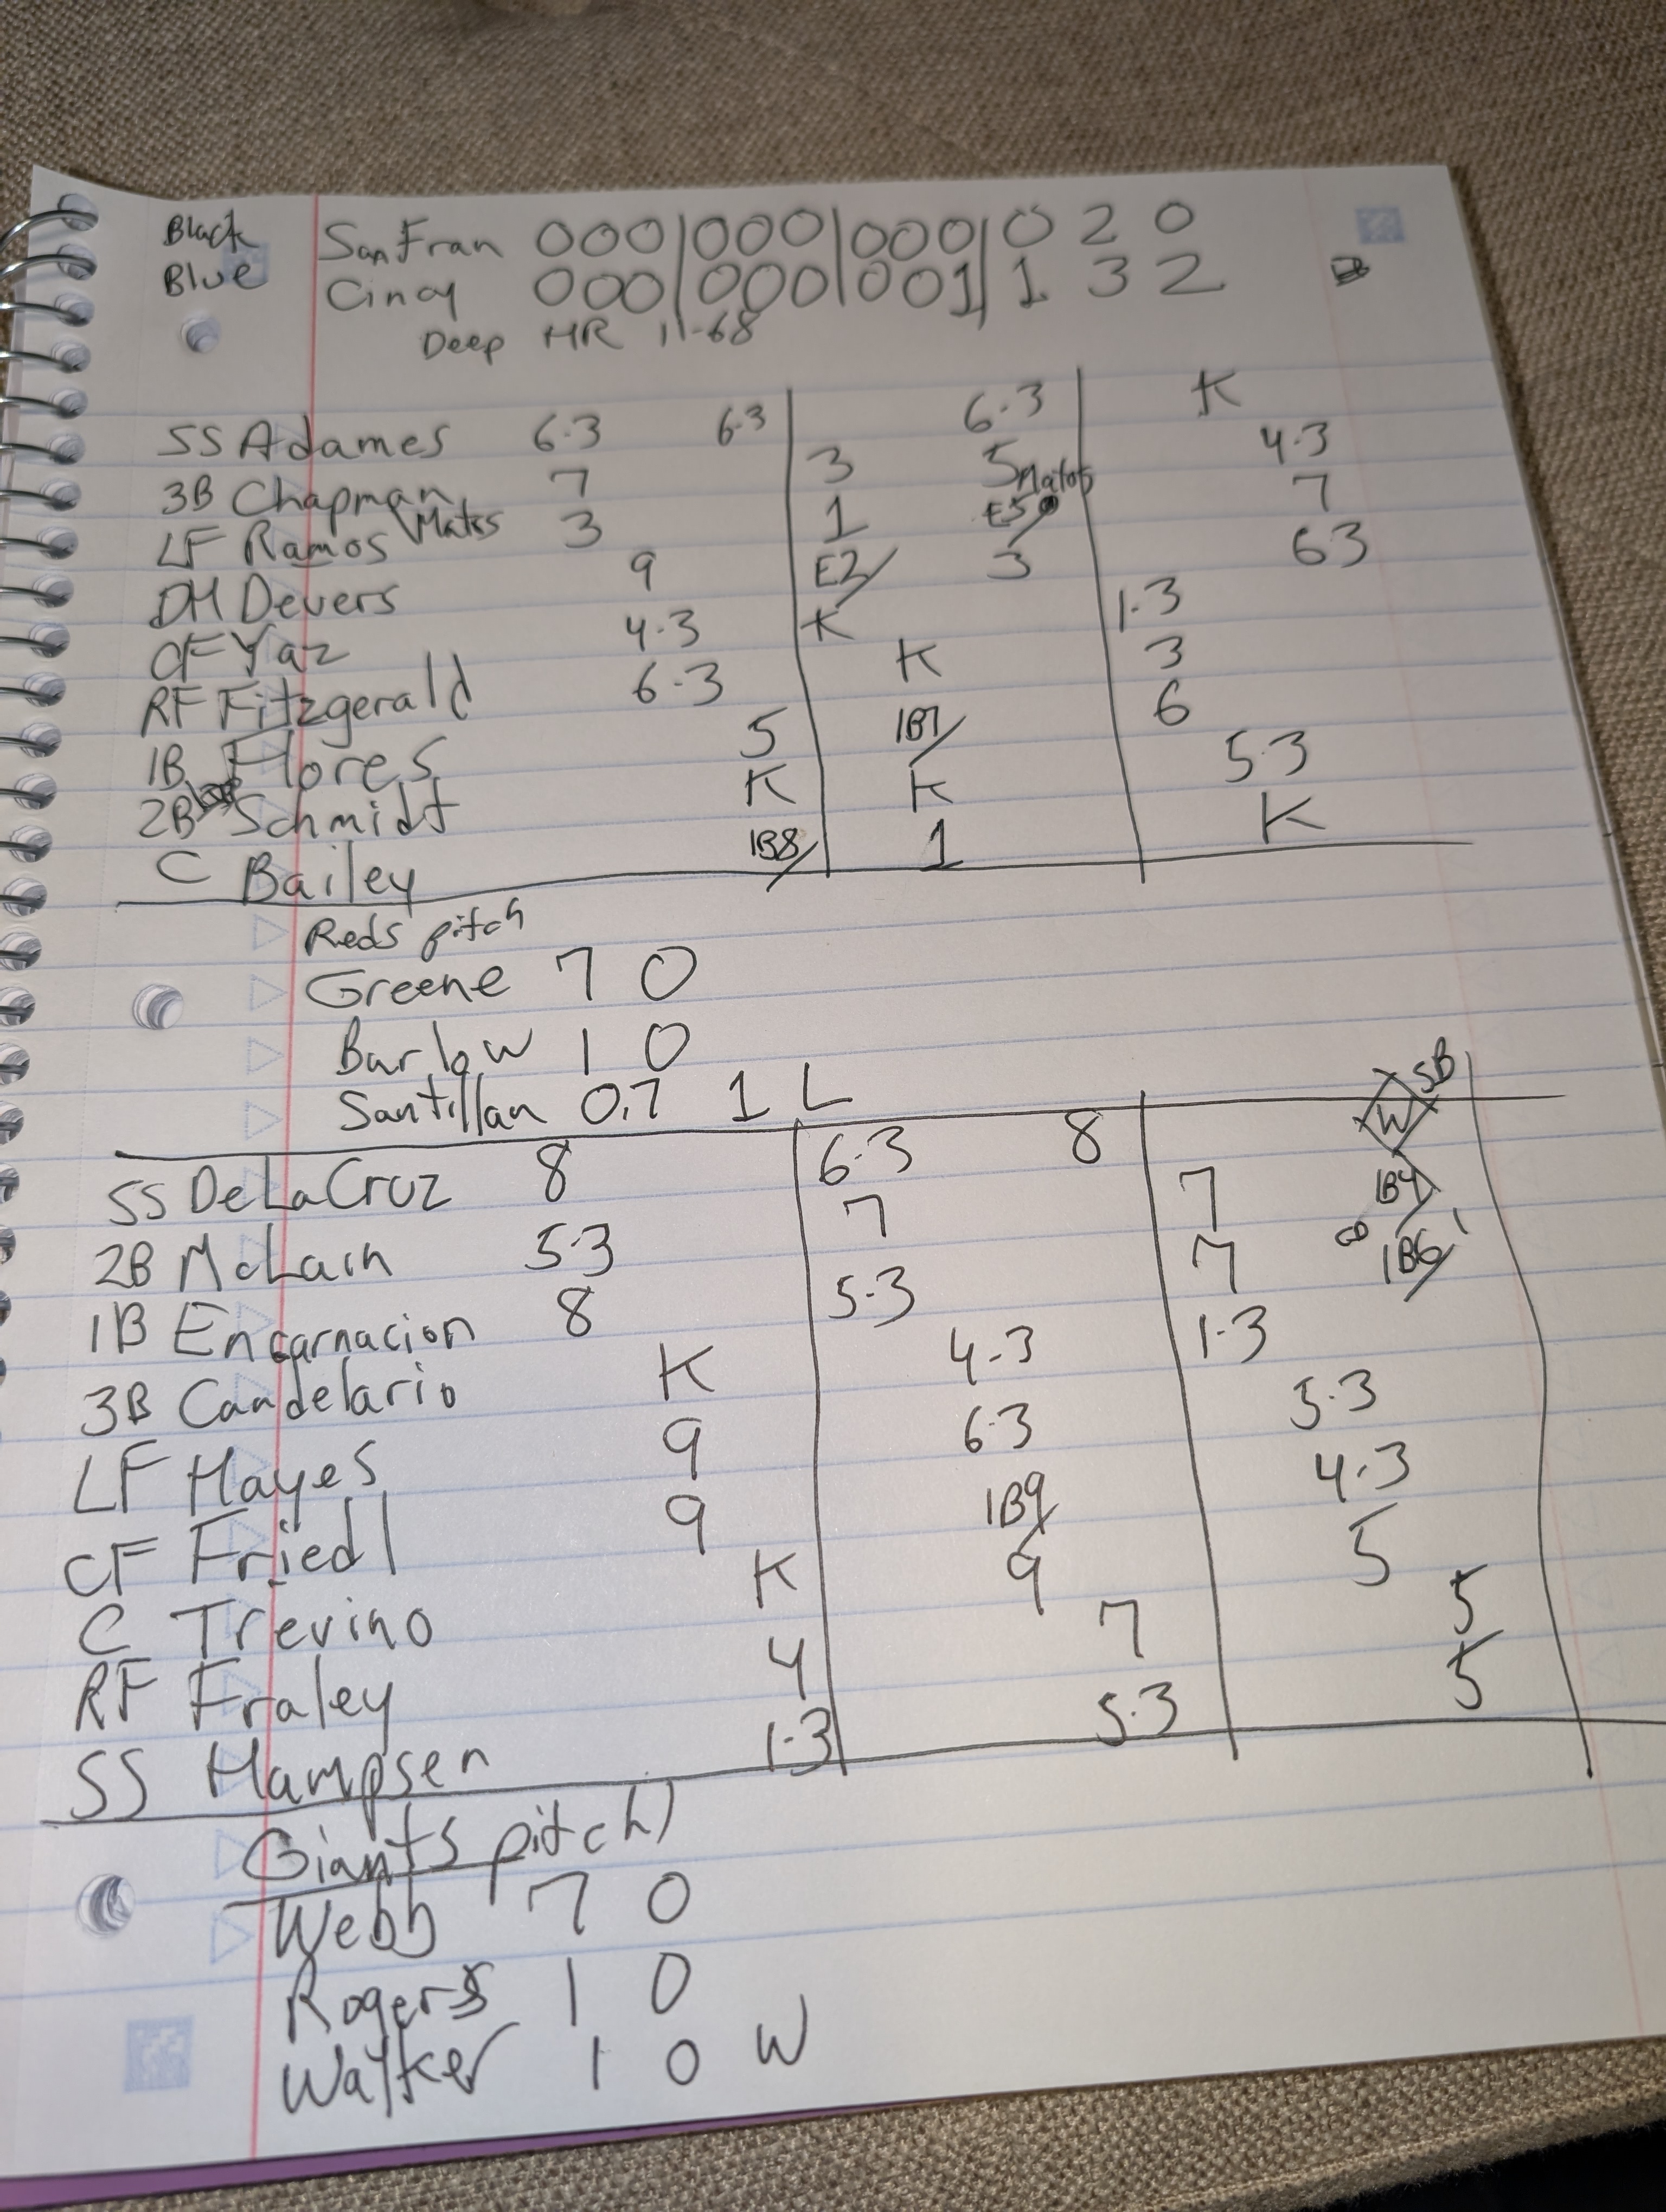 Black San Fran 000|000|000| 0 2 0
Blue Cincy 000|000|001| 1 3 2
Deep HR 11-68
SS Adames 6.3 6.3 6.3 K
3B Chapman 7 3 5 4.3
LF Ramos Matos 3 1 E5 Matos 7
DH Devers 9 E2 3 63
CF Yaz 4.3 K 1.3
RF Fitzgerald 6.3 K 3
1B Flores 5 1B7 6
2B Schmidt K K 5.3
C Bailey 1B8 1 K
Reds pitch
Greene 7 0
Barlow 1 0
Santillan 0.7 1 L
SS DeLaCruz 8 6.3 8 W SB
2B McLain 5.3 7 7 1B4
1B Encarnacion 8 5.3 7 1B6 1
3B Candelario K 4-3 1-3
LF Hayes 9 6.3 5.3
CF Friedl 9 1B9 4.3
C Trevino K 9 5
RF Fraley 4 7 5
SS Hampsen 1-3 5.3 5
Giants pitch
Webb 7 0
Rogers 1 0
Walker 1 0 W